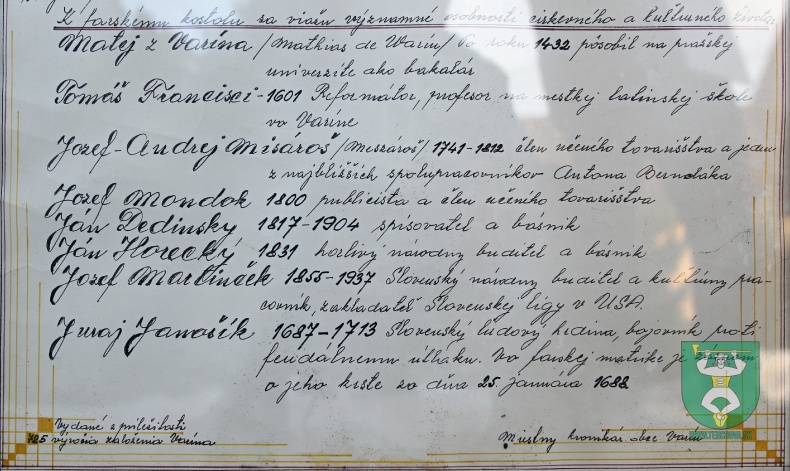 K farskému kostolu sa viažu významné osobnosti cirkevného a kultúrneho života
Matej z Varína /Mathias de Warin/ Po roku 1432 pôsobil na pražskej
univerzite ako bakalár
Tomáš Francisci - 1601 Reformátor, profesor na mestkej latinskej škole
vo Varíne
Jozef-Andrej Misároš /Meszároš/ 1741-1812 člen učeného tovarišstva a jeden
z najbližších spolupracovníkov Antona Bernoláka
Jozef Mondok 1800 publicista a člen učeního tovarišstva
Ján Dedinsky 1817-1904 spisovatel a básnik
Ján Horecký 1831 horlivý národny buditel a básnik
Jozef Martinček 1855-1937 Slovenský národny buditel a kultúrny pra-
covník, zakladateľ Slovenskej ligy v USA.
Juraj Janošík 1687-1713 Slovenský ludový hrdina, bojovník proti
feudálnemu útlaku. Vo farskej matrike je záznam
o jeho krste zo dňa 25. januára 1688
Vydané z príležitosti
725 výročia založenia Varína
Miestny kronikár obce Varín